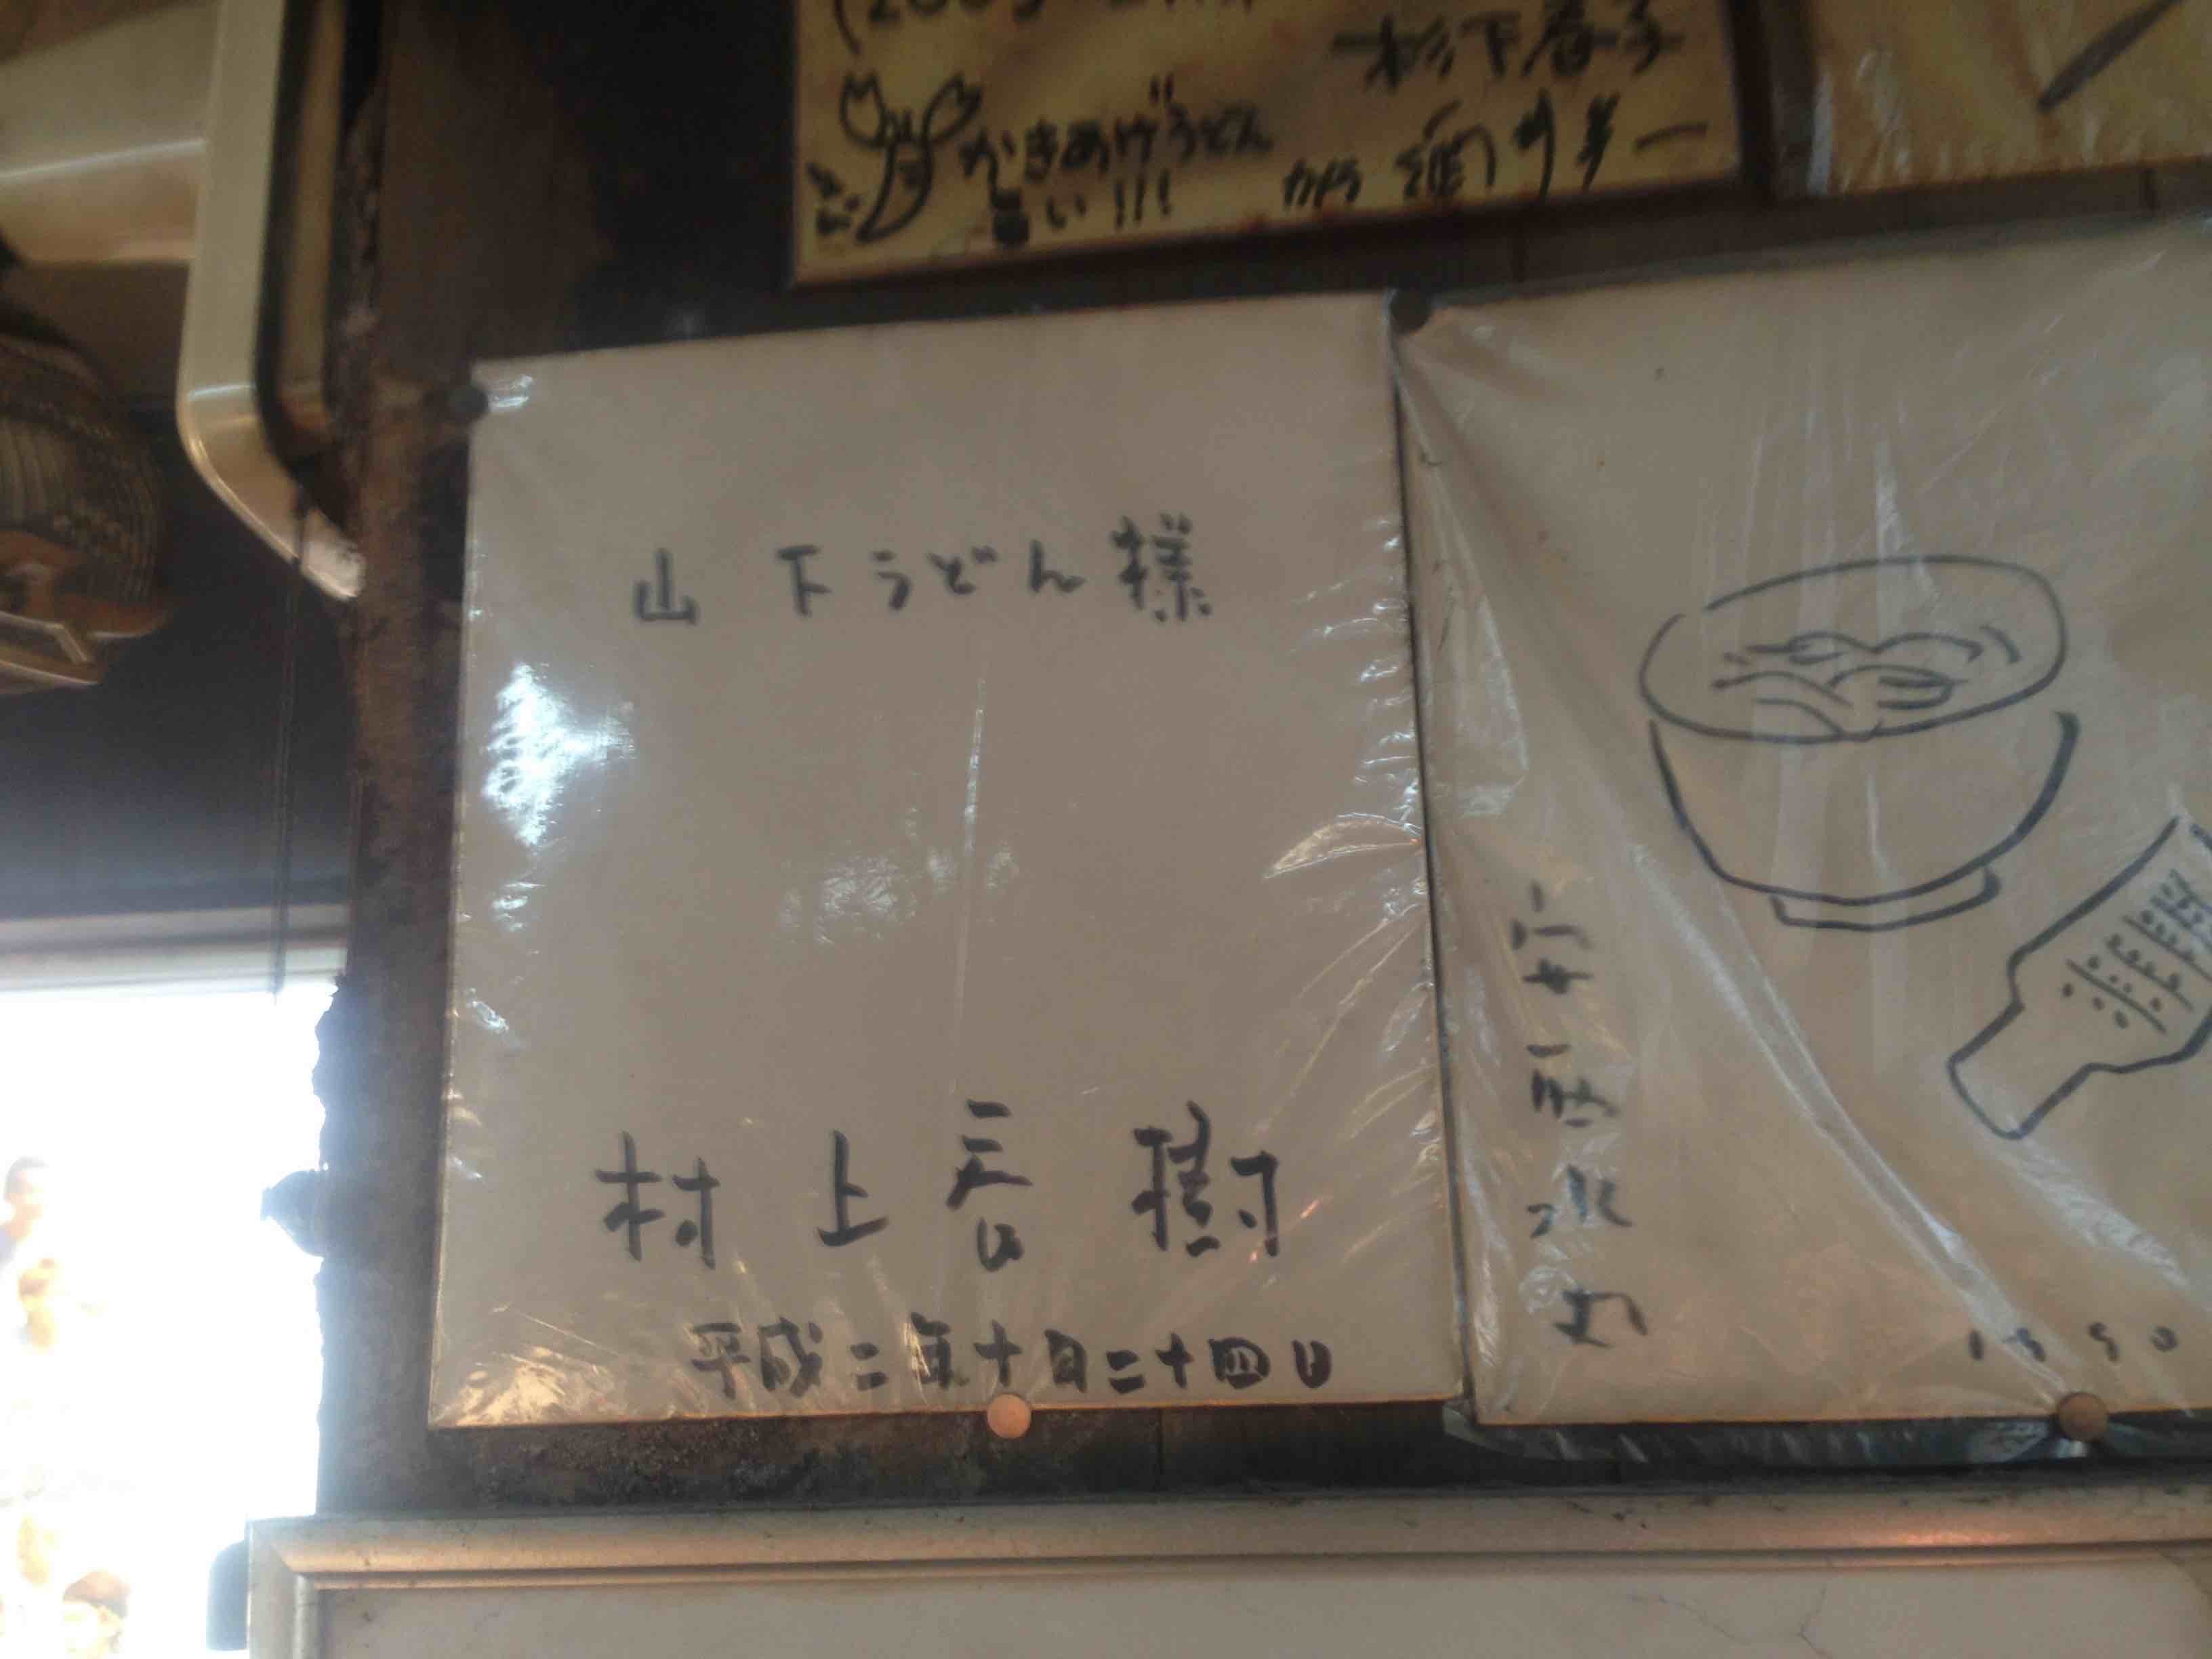 杉下春子
かきあげうどん
旨い!!!
から
山下うどん様
村上春樹
平成二年十月二十四日
安西水丸
1990